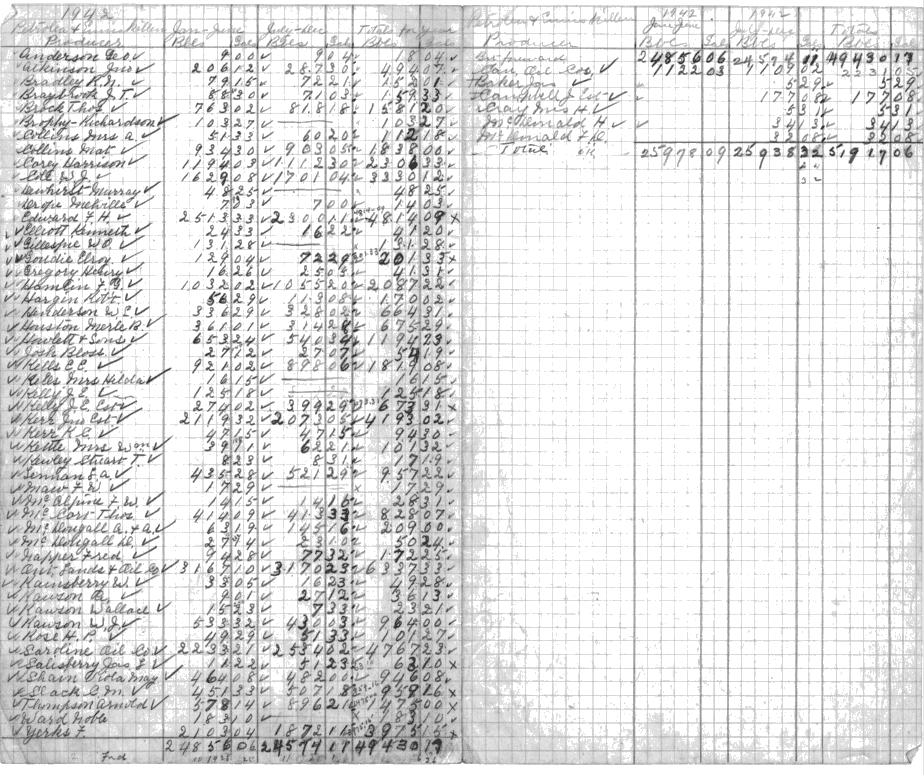 1942
Petrolia & Ennis Killen Jan-June July-Dec Totals for year
Producer Bbls Gals Bbls Gals Bbls Gals
Anderson Geo.
Atkinson Jno. 206 12 287 30 494 07
Bradley R.N. 79 15 72 21 152 01
Braybrook S.T. 88 30 71 03 159 33
Brock Thos. 763 02 818 18 1581 20
Brophy-Richardson 103 27 103 27
Collins Mrs A. 51 33 60 20 112 18
Collins Mat. 934 30 903 05 1838 00
Corey Harrison 1194 03 1112 30 2306 33
Cole W.J. 1629 08 1701 04 3330 12
Dewhirst Murray 48 25 48 25
Drope Melville 7 03 7 00 14 03
Edward F.H. 2513 33 2300 11 4814 09 x
Elliott Kenneth 24 33 16 22 41 20
Gillespie W.O. 131 28 131 28
Goudie Elroy 129 04 72 29 201 33 x
Gregory Henry 16 26 25 05 41 31
Hamlin F.G. 1032 02 1055 20 2087 22
Hargin Robt. 56 29 113 08 170 02
Henderson W.E. 336 29 328 02 664 31
Houston Merle B. 361 01 314 28 675 29
Howlett & Sons 653 24 540 34 1194 23
Josh Bloss 27 12 27 07 54 19
Kells E.E. 921 02 898 06 1819 08
Kells Mrs Hilda 16 15 16 15
Kelly J.E. 125 18 125 18
Kelly J.E. Est. 274 02 399 29 673 31 x
Kerr Jno Est. 2119 32 2073 05 4193 02
Kerr K.E. 47 15 47 15 94 30
Kettle Mrs Wm. 39 11 62 21 101 32
Kewley Stuart T. 8 23 8 31 17 19
Lennan S.A. 435 28 521 29 957 22
Maw F.W. 17 29 17 29
McAlpine F.W. 14 15 14 16 28 31
McCort Thos. 414 09 413 33 828 07
McDougall A. & A. 63 19 145 16 209 00
McDougall D. 27 14 23 10 50 24
Napper Fred 94 28 77 32 172 25
Ont. Lands & Oil Co 3167 10 3170 23 6337 33
Rainsberry W. 33 05 16 23 49 28
Rawson A. 9 01 27 12 36 13
Rawson Wallace 15 23 7 33 23 21
Rawson W.J. 533 32 430 03 964 00
Rose H.P. 49 29 51 33 101 27
Saroline Oil Co 2233 21 2534 02 4767 23
Salisberry Jas. S. 11 22 51 23 63 10 x
Shain Viola May 464 08 482 00 946 08
Slack C.M. 451 33 507 18 959 16 x
Thompson Arnold 578 14 896 21 1475 00 x
Ward Noble 183 10 183 10
Yerks F. 2103 04 1872 11 3975 15 x
Fwd 24856 06 24574 11 49430 17
Petrolia & Ennis Killen 1942 1942
Jan-June July-Dec Totals
Producer Bbls Gals Bbls Gals Bbls Gals
Brt forward 24856 06 24574 11 49430 17
Can. Oil Cos. 1122 03 1109 02 2231 05
Baker Jas. 5 29 5 29
Campbell J Est 177 08 177 08
Clark Jno H. 5 31 5 31
McDonald H. 34 13 34 13
McDonald F.C. 33 08 33 08
Total 25978 09 25938 32 51917 06